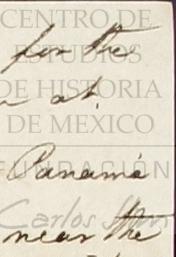 CENTRO DE
ESTUDIOS
for the
DE HISTORIA
at
DE MEXICO
Panamá
FUNDACIÓN
Carlos Slim
near the